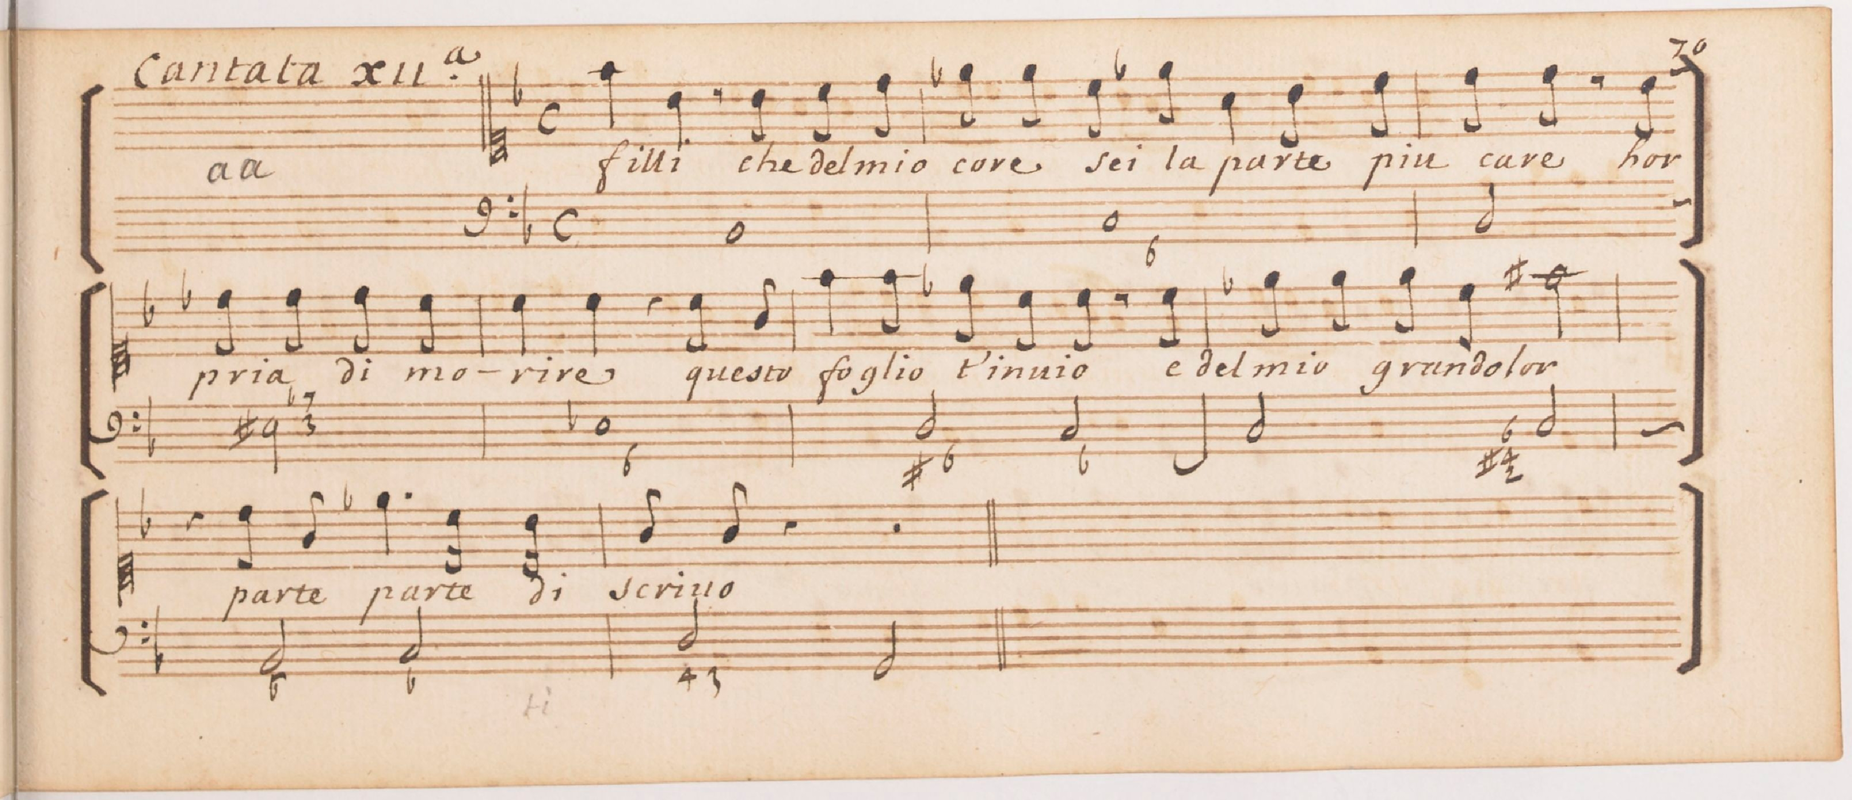 Cantata XIIª
70
aa
filli che del mio core sei la parte piu care hor
6
pria di mo-rire questo foglio t'inuio e del mio grandolor
♭7
3
6
#6 ♭ 6
#4
2
parte parte di scriuo
♭ ♭ 4 3
ti